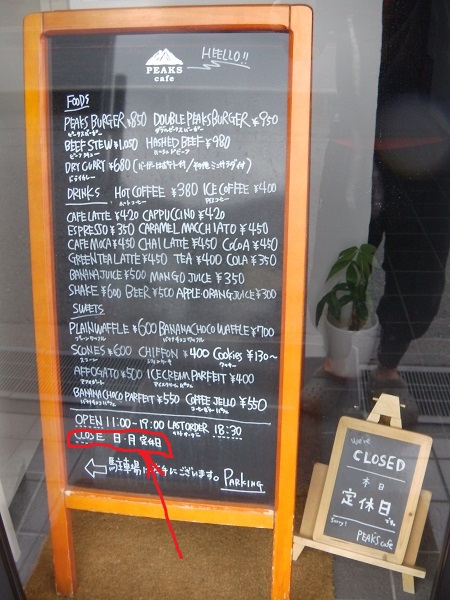 HEELLO!!
PEAKS
cafe
FOODS
PEAKS BURGER ¥850 DOUBLE PEAKS BURGER ¥950
ピークスバーガー ダブルピークスバーガー
BEEF STEW ¥1,050 HASHED BEEF ¥980
ビーフシチュー
DRY CURRY ¥680
ドライカレー
DRINKS HOT COFFEE ¥380 ICE COFFEE ¥400
CAFE LATTE ¥420 CAPPUCCINO ¥420
ESPRESSO ¥350 CARAMEL MACCHIATO ¥450
CAFE MOCA ¥450 CHAI LATTE ¥450 COCOA ¥450
GREEN TEA LATTE ¥450 TEA ¥400 COLA ¥350
BANANA JUICE ¥500 MANGO JUICE ¥350
SHAKE ¥600 BEER ¥500 APPLE・ORANGE JUICE ¥300
SWEETS
PLAIN WAFFLE ¥600 BANANA CHOCO WAFFLE ¥700
プレーンワッフル バナナチョコワッフル
SCONES ¥600 CHIFFON ¥400 COOKIES ¥130~
スコーン シフォンケーキ クッキー
AFFOGATO ¥500 ICE CREAM PARFEIT ¥400
アフォガート アイスクリームパフェ
BANANA CHOCO PARFEIT ¥550 COFFEE JELLO ¥550
バナナチョコパフェ コーヒーゼリー
OPEN 11:00~19:00 LAST ORDER 18:30
ラストオーダー
CLOSE 日・月 定休日
駐車場は ございます。 PARKING
We're
CLOSED
本日
定休日
です。
Sorry!
PEAKS cafe